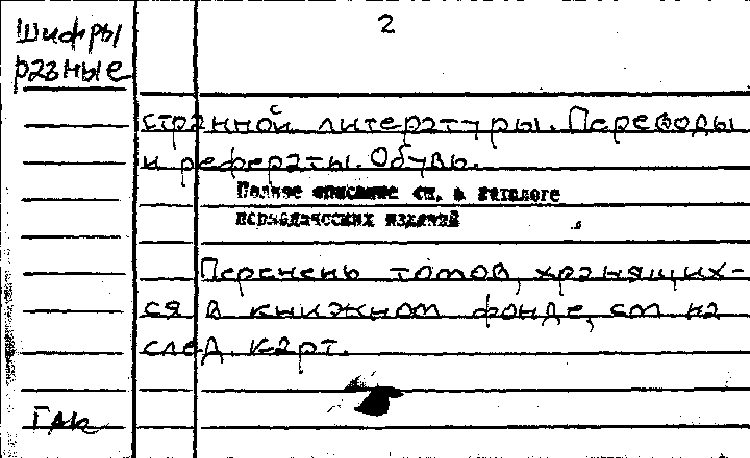 Шифры
разные
2
странной литературы. Переводы
и рефераты. Обувь.
Полное описание см. в каталоге
периодических изданий
Перечень томов, хранящих-
ся в книжном фонде, см на
след. карт.
ГАК